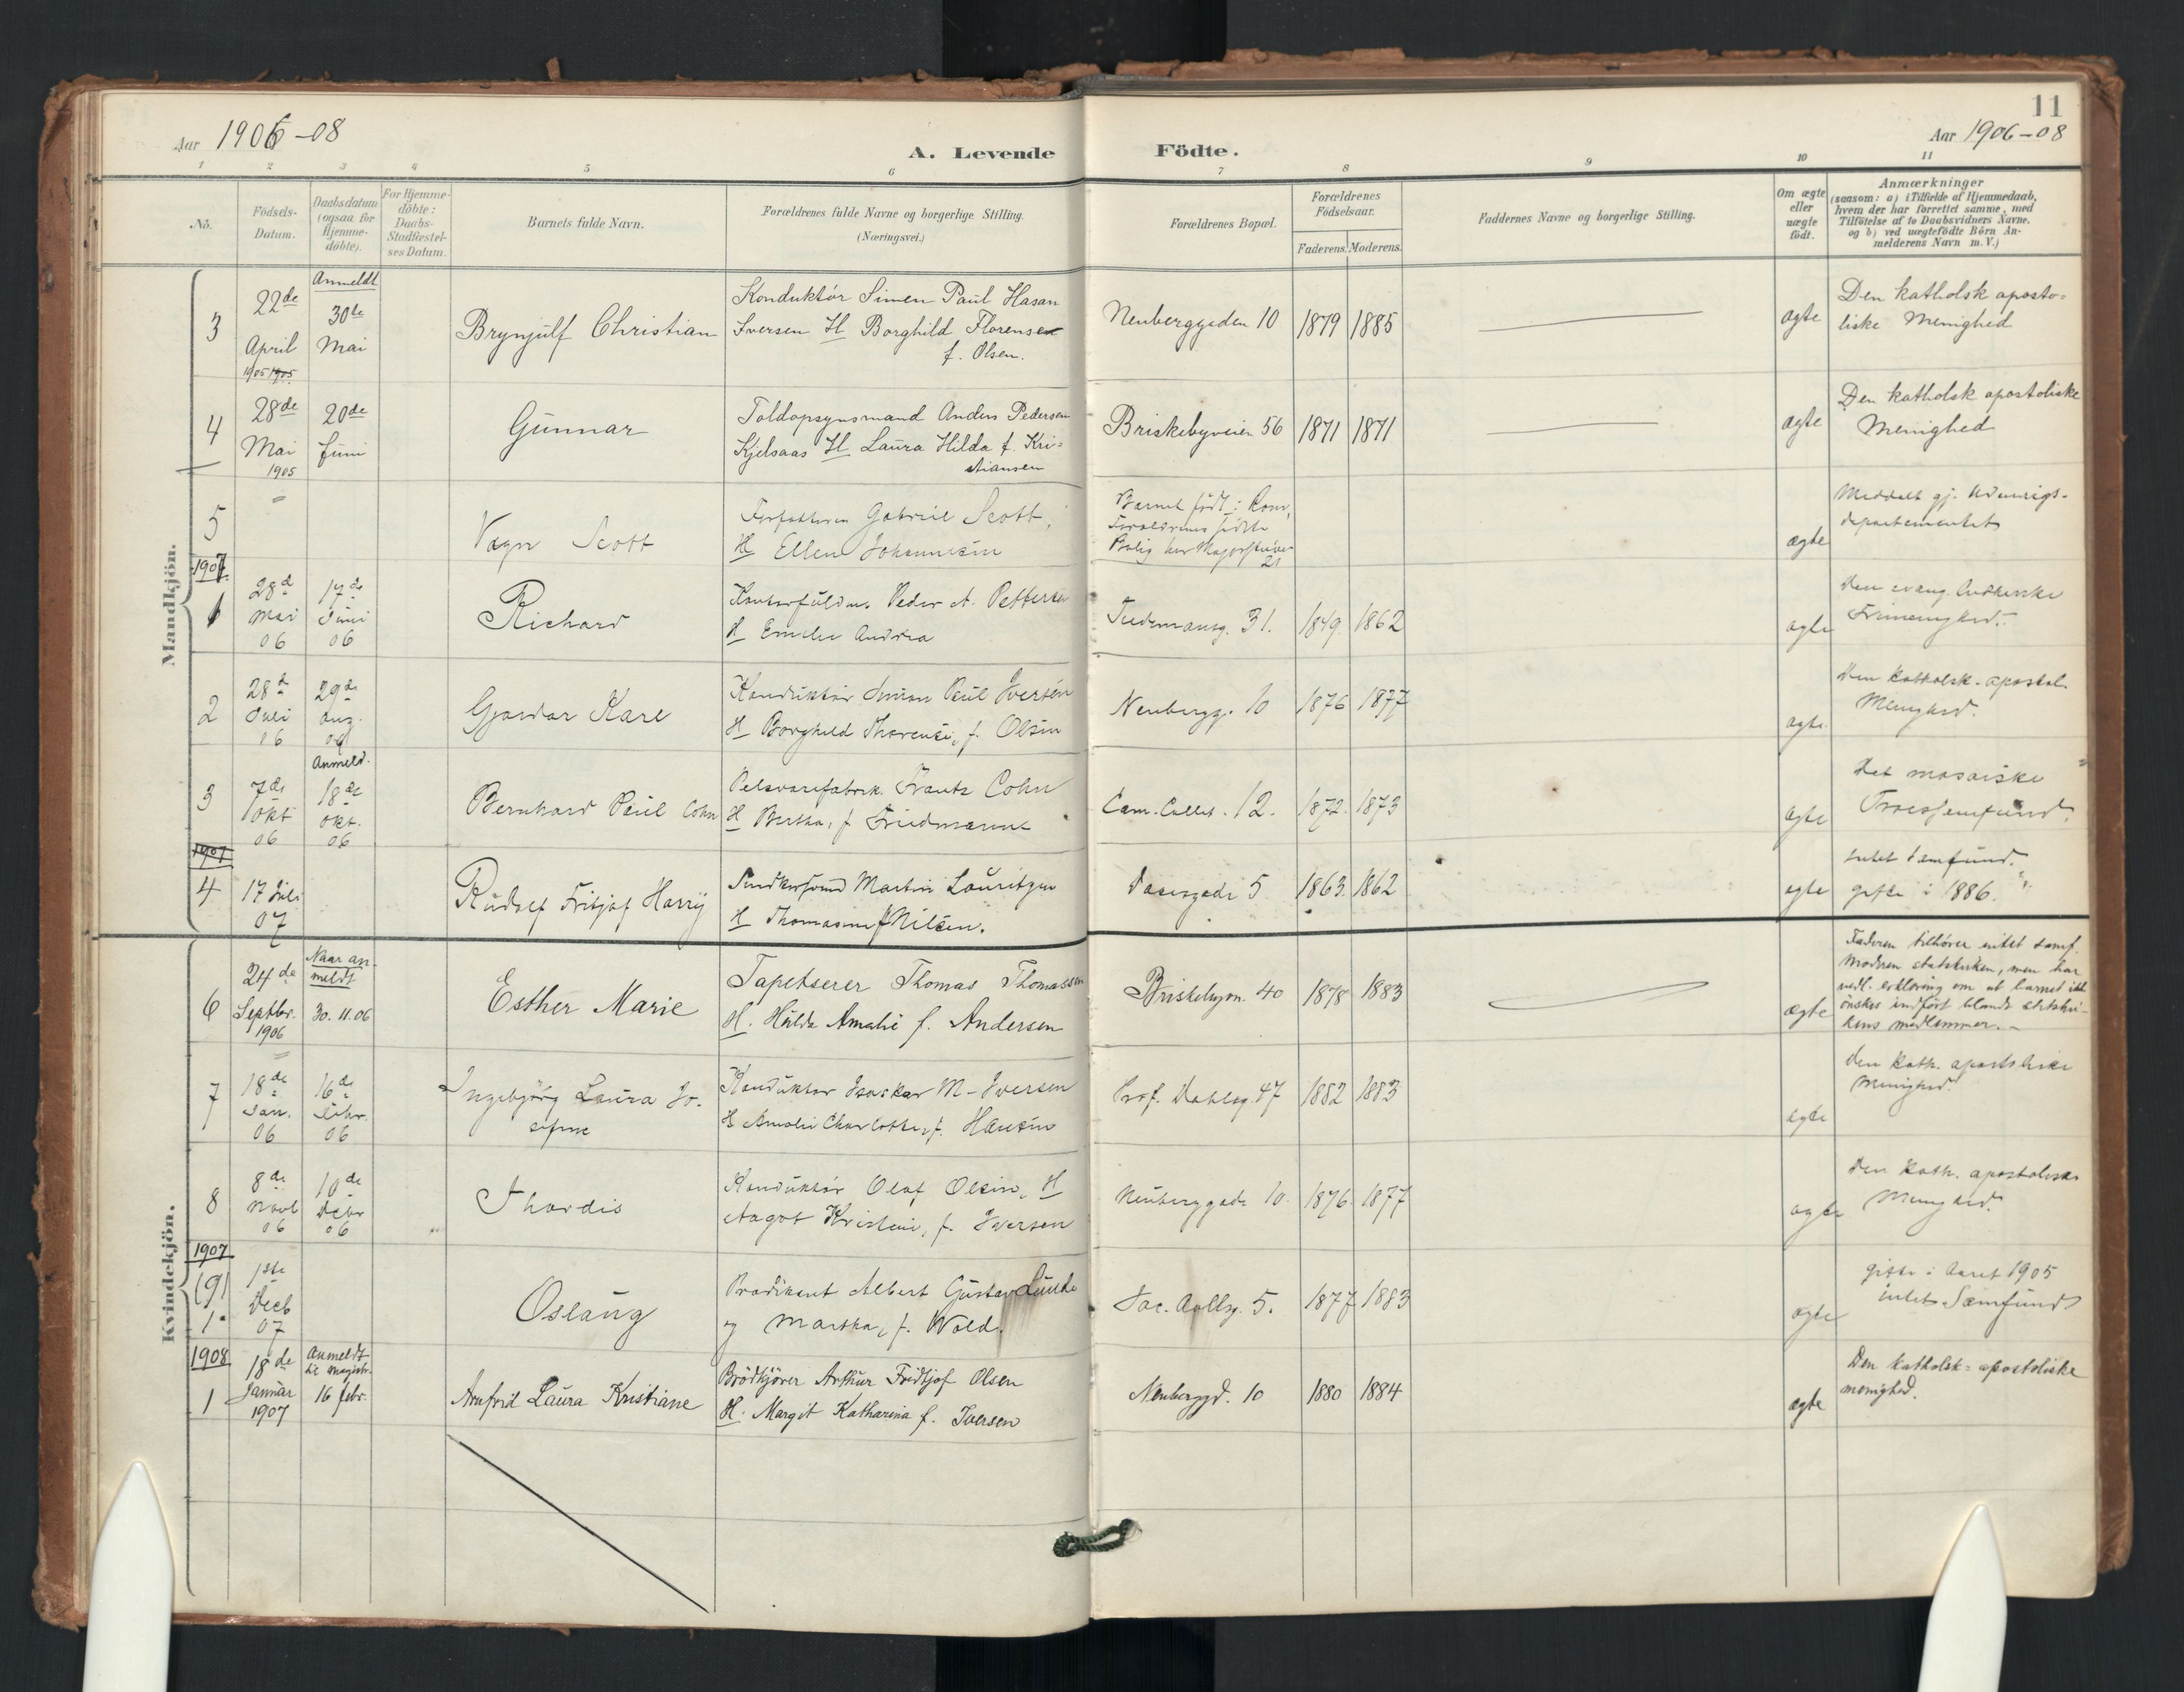 Aar 1906-08
A. Levende
Födte.
11
Aar 1906-08
1 2 3 4 5 6 7 8 9 10 11
No.
Födsels-
Datum.
Daabsdatum
(ogsaa for
Hjemme-
döbte).
For Hjemme-
döbte:
Daabs-
Stadfæstel-
ses Datum.
Barnets fulde Navn.
Forældrenes fulde Navne og borgerlige Stilling.
(Næringsvei.)
Forældrenes Bopæl.
Forældrenes
Födselsaar.
Faderens. Moderens.
Faddernes Navne og borgerlige Stilling.
Om ægte
eller
uægte
födt.
Anmærkninger
(saasom: a) i Tilfælde af Hjemmedaab,
hvem der har forrettet samme, med
Tilföielse af to Daabsvidners Navne,
og b) ved uægtefödte Börn An-
melderens Navn m.V.)
Mandkjön.
3
22de
April
1905 1905
Anmeldt
30te
Mai
Brynjulf Christian
Konduktør Simen Paul Hasan
Iversen H Borghild Florense
f. Olsen.
Neuberggaden 10
1879 1885
ægte
Den katholsk aposto=
liske Menighed
4
28de
Mai
1905
20de
Juni
Gunnar
Toldopsynsmand Anders Pedersen
Kjelsaas H Laura Hilda f. Kri=
stiansen
Briskebyveien 56
1871 1871
ægte
Den katholsk apostoliske
Menighed
5
Vagn Scott
Forfatteren Gabriel Scott,
H Ellen Johannesen
Barnet født i Rom,
Forældrenes sidste
Bolig her Majorstuvei
21
ægte
Meddelt gj. Udenrigs-
departementet
1907
1
28d
Mai
06
17de
Juni
06
Richard
Kontorfuldm. Peder A. Pettersen
H Emilie Andrea
Tidemansg. 31.
1849 1862
ægte
Den evang. lutherske
Frimenighed.
2
28d
Juli
06
29de
Aug.
06
Gjordar Kare
Konduktør Simon Paul Iversen
H Borghild Thorense, f. Olsen
Neubergg. 10
1876 1877
ægte
Den katholsk-apostol.
Menighed.
3
7de
Okt
06
Anmeld.
18de
Okt.
06
Bernhard Paul Cohn
Pelsvarefabrik. Frantz Cohn
H Bertha, f Friedmann
Cam. Collet. 12.
1872. 1873
ægte
Det mosaiske
Troessamfund.
1907
4
17 Juli
07
Rudolf Fritjof Harry
Snedkersvend Martin Lauritzen
H Thomasine f Nilsen.
5
1863. 1862
ægte
Intet samfund.
gifte i 1886.
Kvindekjön.
6
24de
Septbr.
1906
Naar an-
meldt
30.11.06
Esther Marie
Tapetserer Thomas Thomassen
H. Hulda Amalie f. Andersen
Briskebyvn. 40
1878 1883
ægte
Faderen tilhører intet samf.
Moderen statskirken, men har
vedl. erklæring om at barnet ikke
ønskes indført blandt statskir-
kens medlemmer.-
7
18de
Jan.
06
16de
Febr.
06
Ingebjørg Laura Jo-
sefine
Konduktør Isaskar M-Iversen
H Amalie Charlotte, f. Hansen
Prof. Dahlsg. 47
1882 1883
ægte
Den kath. apostoliske
Menighed.
8
8de
Novb
06
10de
Debr
06
Thordis
Konduktør Olaf Olsen, H
Aagot Kristine, f. Iversen
Neuberggade 10.
1876. 1877
ægte
Den kath. apostoliske
Menighed.
1907
(9)
1.
1ste
Decb
07
Oslaug
Prædikant Albert Gustav Lunde
og Martha, f. Wold.
Jac. Aallsg. 5.
1877 1883
ægte
gifte i Aaret 1905
intet Samfund
1908
1
18de
Januar
1907
Anmeldt
til magistr.
16 febr.
Arnfrid Laura Kristiane
Brödkjörer Arthur Fridtjof Olsen
H. Margit Katharina f. Iversen
Neuberggd. 10
1880 1884
ægte
Den katholsk=apostoliske
menighed.